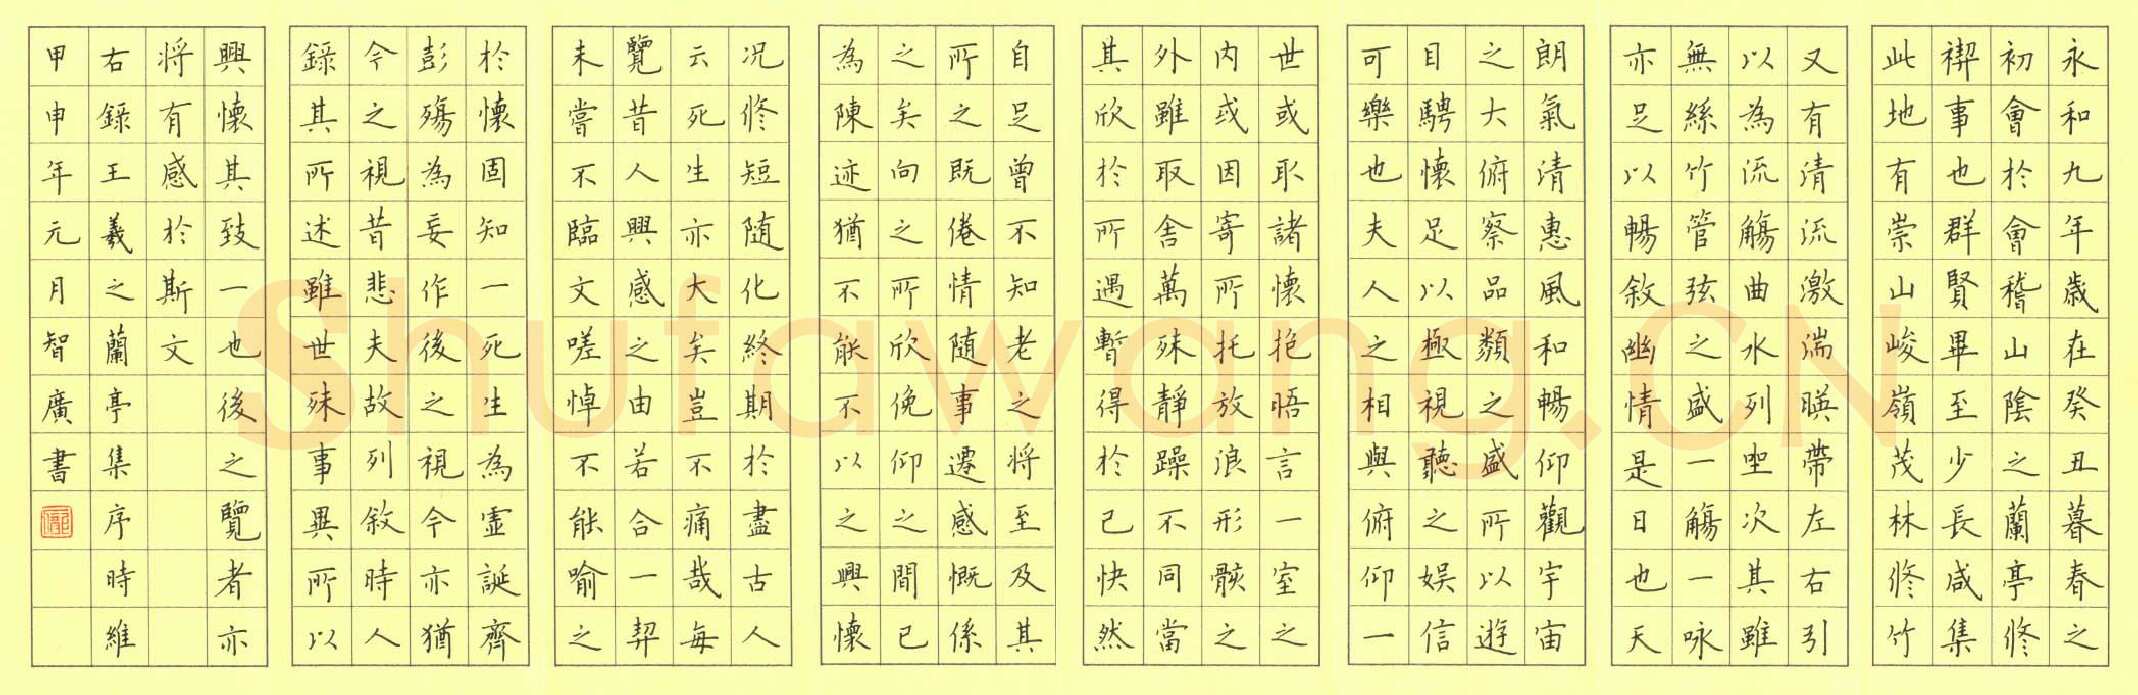 永和九年歲在癸丑暮春之
初會於會稽山陰之蘭亭修
禊事也群賢畢至少長咸集
此地有崇山峻嶺茂林修竹
又有清流激湍暎帶左右引
以為流觴曲水列坐次其雖
無絲竹管弦之盛一觴一咏
亦足以暢敘幽情是日也天
朗氣清惠風和暢仰觀宇宙
之大俯察品類之盛所以遊
目騁懷足以極視聽之娱信
可樂也夫人之相與俯仰一
世或取諸懷抱晤言一室之
内或因寄所托放浪形骸之
外雖取舍萬殊靜躁不同當
其欣於所遇暫得於己快然
自足曾不知老之將至及其
所之既倦情随事遷感慨係
之矣向之所欣俛仰之間已
為陳迹猶不能不以之興懷
况修短随化終期於盡古人
云死生亦大矣豈不痛哉每
覽昔人興感之由若合一契
未嘗不臨文嗟悼不能喻之
於懷固知一死生為虚誕齊
彭殤為妄作後之視今亦猶
今之視昔悲夫故列敘時人
錄其所述雖世殊事異所以
興懷其致一也後之覽者亦
將有感於斯文
右錄王羲之蘭亭集序時維
甲申年元月智廣書
Shufawang.CN